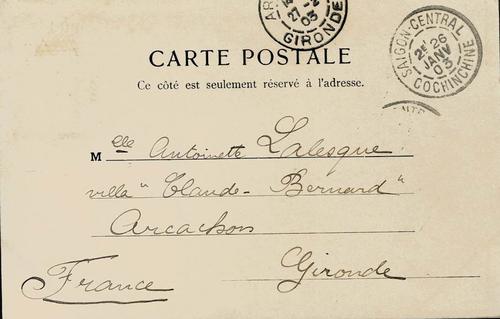 AR
27
03
GIRONDE
SAIGON-CENTRAL
2E 26
JANV
03
COCHINCHINE
CARTE POSTALE
Ce côté est seulement réservé à l'adresse.
Melle Antoinette Lalesque
villa "Claude-Bernard"
Arcachon
Gironde
France